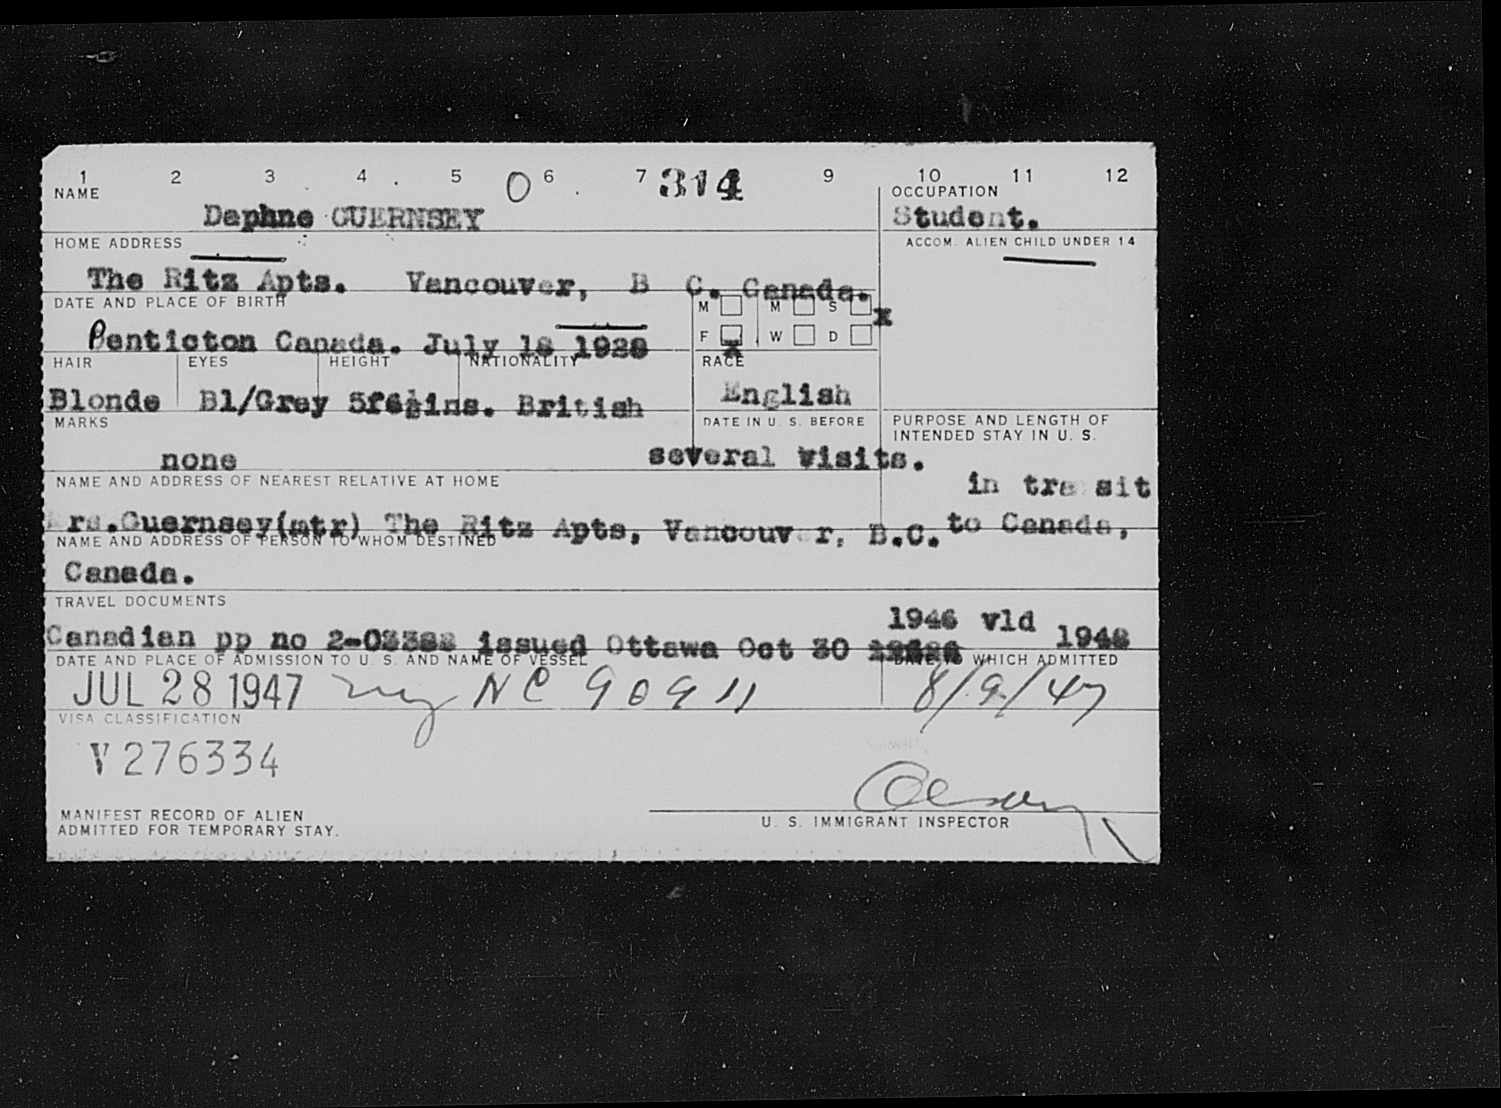 1 2 3 4 5 0 6 7 314 9 10 11 12
NAME OCCUPATION
Daphne GUERNSEY Student.
HOME ADDRESS ACCOM. ALIEN CHILD UNDER 14
The Ritz Apts. Vancouver, B C. Canada.
DATE AND PLACE OF BIRTH M M S x
Penticton Canada. July 18 1928 F x W D
HAIR EYES HEIGHT NATIONALITY RACE
Blonde Bl/Grey 5f6½ins. British English
MARKS DATE IN U. S. BEFORE PURPOSE AND LENGTH OF
INTENDED STAY IN U. S.
none several visits.
NAME AND ADDRESS OF NEAREST RELATIVE AT HOME in transit
rs.Guernsey(mtr) The Ritz Apts, Vancouver, B.C. to Canada,
NAME AND ADDRESS OF PERSON TO WHOM DESTINED
Canada.
TRAVEL DOCUMENTS
1946 vld 1948
Canadian pp no issued Ottawa Oct 30
DATE AND PLACE OF ADMISSION TO U. S. AND NAME OF VESSEL DATE TO WHICH ADMITTED
JUL 28 1947 NY NC 90911 8/9/47
VISA CLASSIFICATION
V 276334
MANIFEST RECORD OF ALIEN
ADMITTED FOR TEMPORARY STAY.
U. S. IMMIGRANT INSPECTOR